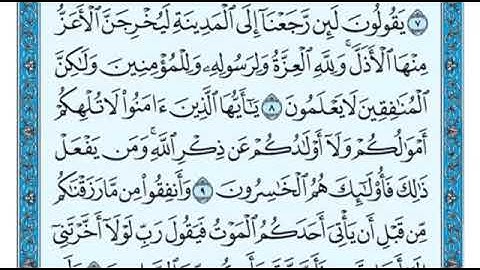 ٧ يَقُولُونَ لَئِن رَّجَعْنَآ إِلَى ٱلْمَدِينَةِ لَيُخْرِجَنَّ ٱلْأَعَزُّ
مِنْهَا ٱلْأَذَلَّ ۚ وَلِلَّهِ ٱلْعِزَّةُ وَلِرَسُولِهِۦ وَلِلْمُؤْمِنِينَ وَلَٰكِنَّ
ٱلْمُنَٰفِقِينَ لَا يَعْلَمُونَ ٨ يَٰٓأَيُّهَا ٱلَّذِينَ ءَامَنُوا۟ لَا تُلْهِكُمْ
أَمْوَٰلُكُمْ وَلَآ أَوْلَٰدُكُمْ عَن ذِكْرِ ٱللَّهِ ۚ وَمَن يَفْعَلْ
ذَٰلِكَ فَأُو۟لَٰٓئِكَ هُمُ ٱلْخَٰسِرُونَ ٩ وَأَنفِقُوا۟ مِن مَّا رَزَقْنَٰكُم
مِّن قَبْلِ أَن يَأْتِىَ أَحَدَكُمُ ٱلْمَوْتُ فَيَقُولَ رَبِّ لَوْلَآ أَخَّرْتَنِىٓ